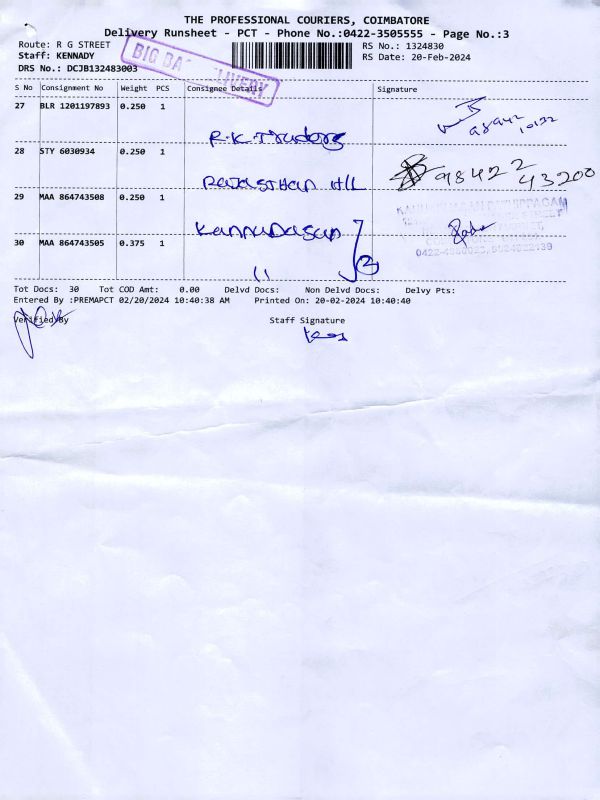 THE PROFESSIONAL COURIERS, COIMBATORE
Delivery Runsheet - PCT - Phone No.:0422-3505555 - Page No.:3
Route: R G STREET
RS No.: 1324830
Staff: KENNADY
RS Date: 20-Feb-2024
DRS No.: DCJB132483003
BIG BA DELIVERY
S No Consignment No Weight PCS Consignee Details Signature
27 BLR 1201197893 0.250 1
R.K. Traders
28 STY 6030934 0.250 1
98422
43200
Rajasthan
29 MAA 864743508 0.250 1
Kannadasan
30 MAA 864743505 0.375 1
2
11
Tot Docs: 30 Tot COD Amt: 0.00 Delvd Docs: Non Delvd Docs: Delvy Pts:
Entered By :PREMAPCT 02/20/2024 10:40:38 AM Printed On: 20-02-2024 10:40:40
Verified By Staff Signature